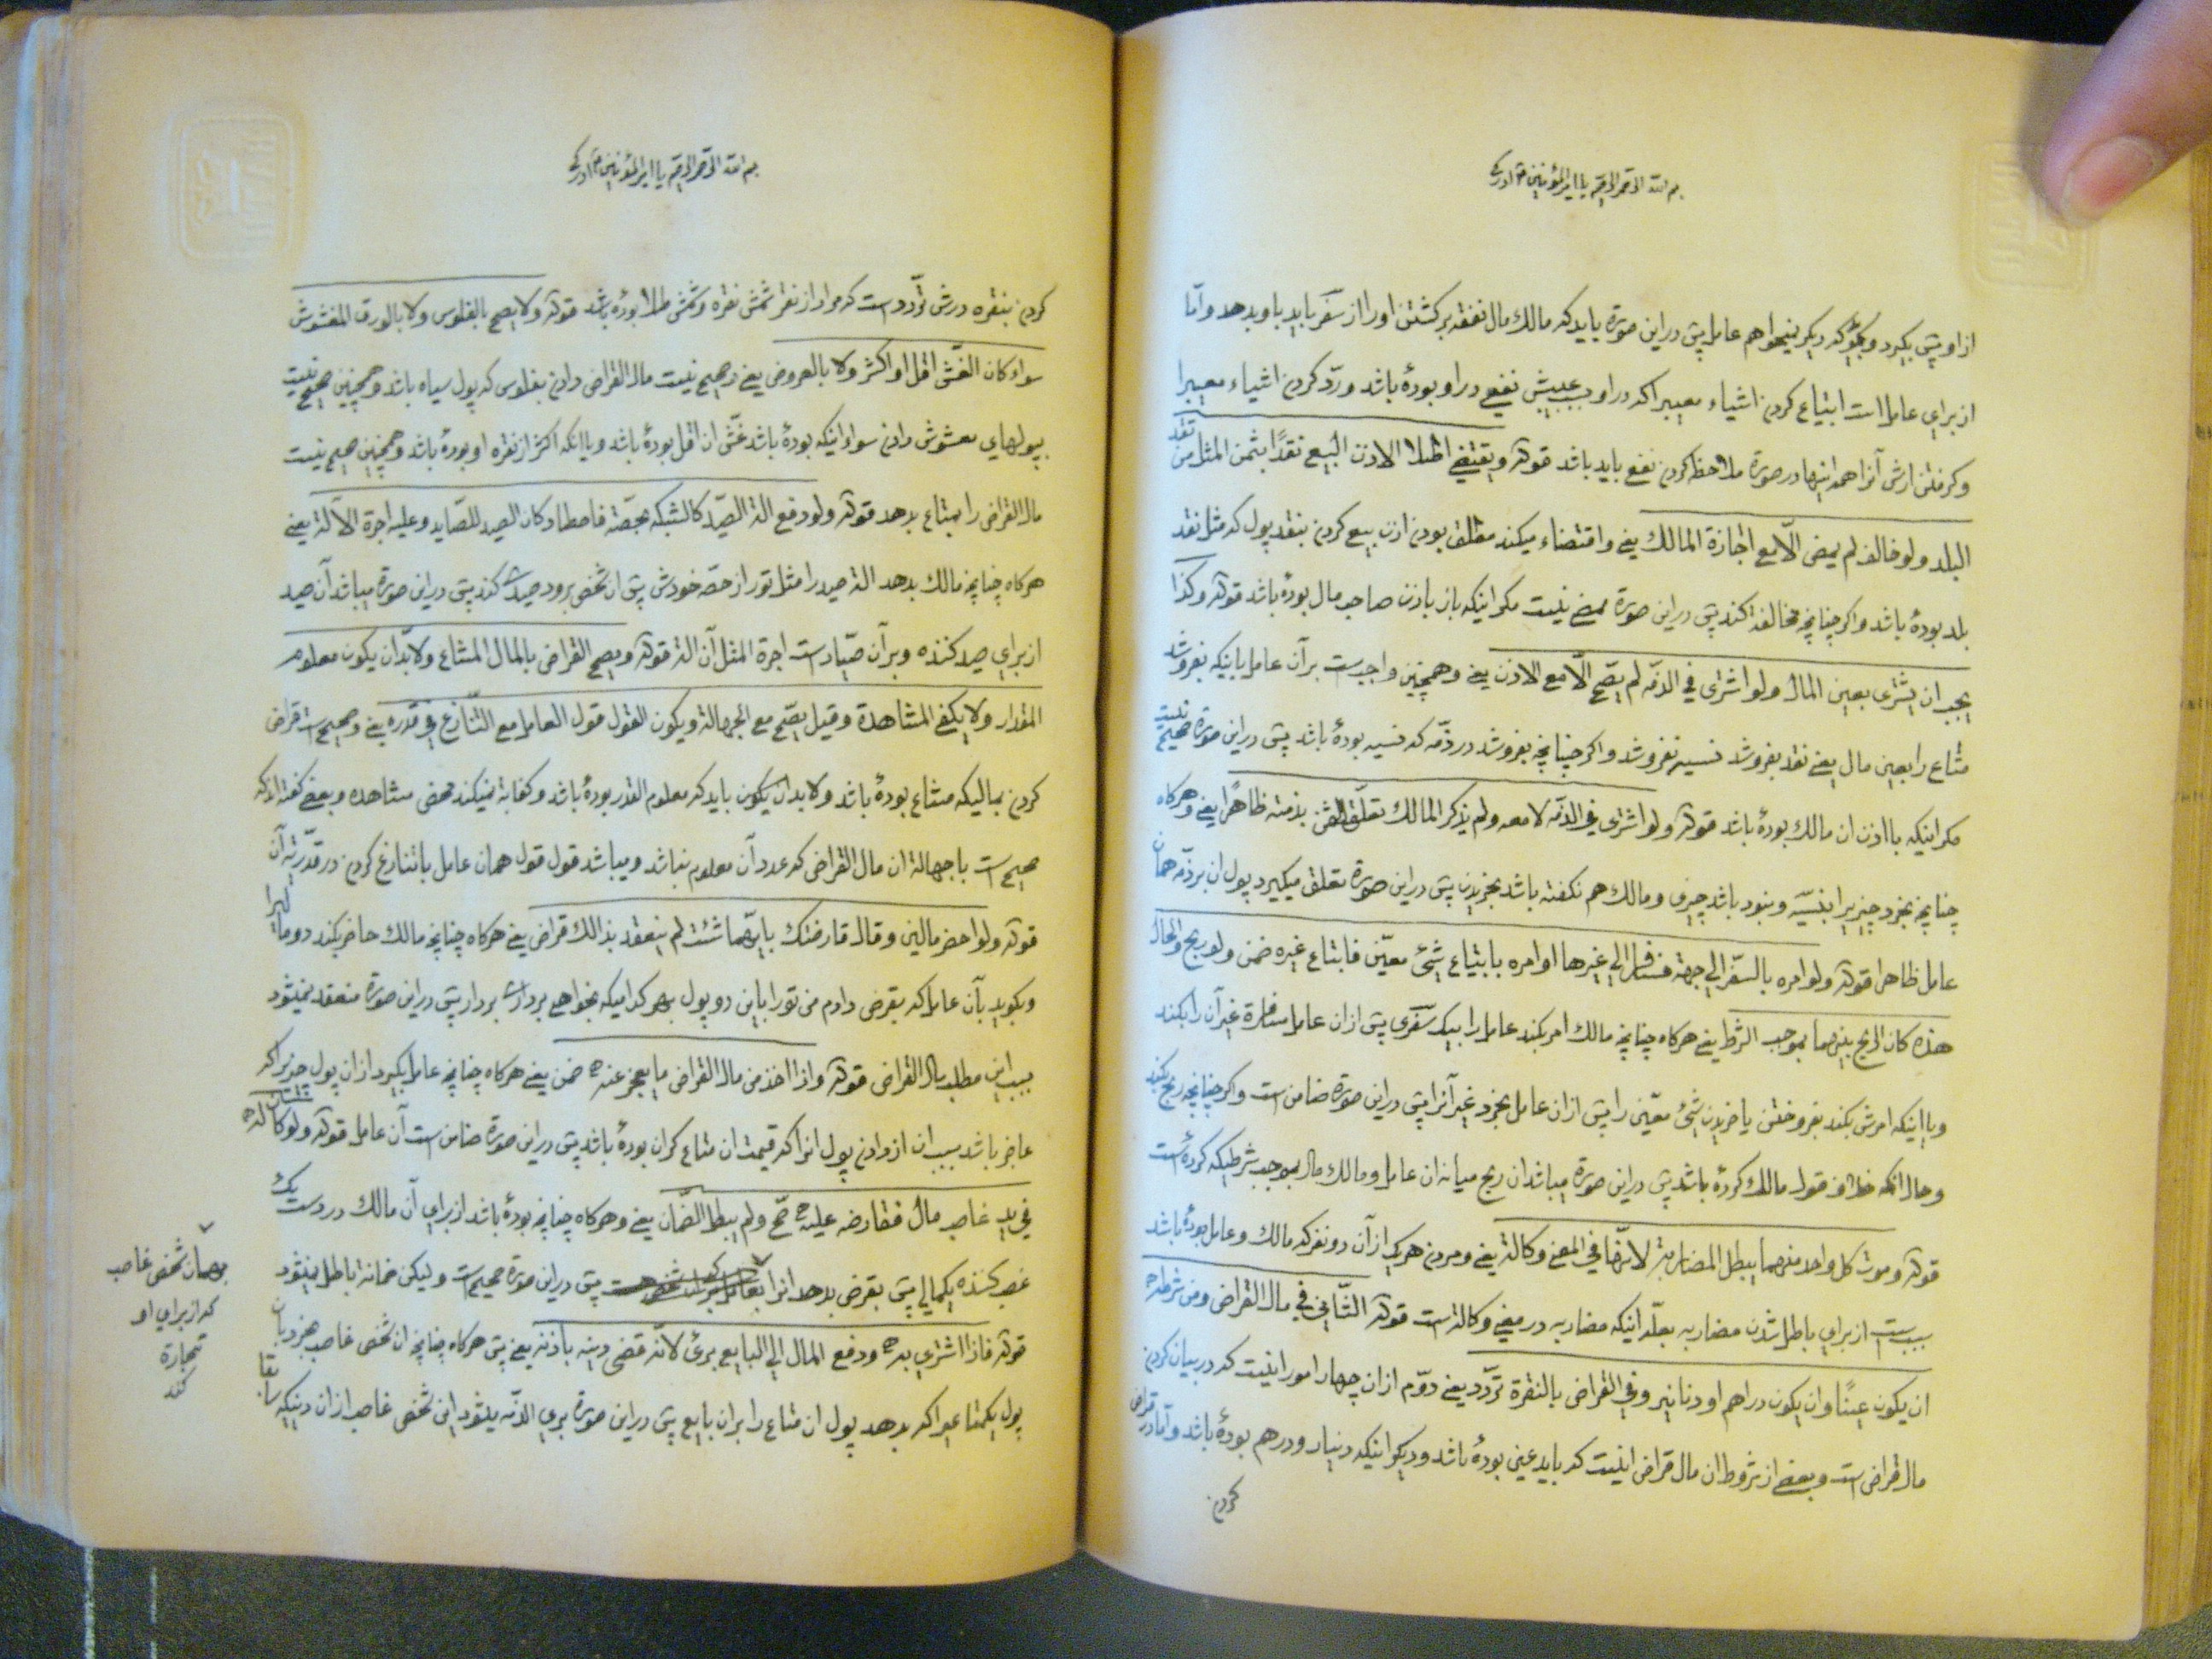 بسم الله الرحمن الرحیم یا امیر المؤمنین ادرکنی
از او پس بگیرد و بگوید که دیگر نمیخواهم عامل پس در این صورة باید که مالک مال نفقه برکشتن او را از سفر باید باو بدهد و امّا
از برای عامل است ابتیاع کردن اشیاء معیبرا که در او بسبب عیبش نفعی در او بودهٔ باشد و ردّ کردن اشیاء معیبرا
و کرفتن ارش آنرا همه اینها در صورة ملاحظه کردن نفع باید باشد قوله و یقتضی اطلاق الاذن البیع نقداً بثمن المثل من نقد
البلد ولو خالف لم یمض الّا مع اجازة المالک یعنی و اقتضاء میکند مطلق بودن اذن بیع کردن بنقد پول که مثل نقد
بلد بودهٔ باشد و اکر چنانچه مخالفة کند پس در این صورة ممضی نیست مکر اینکه باز باذن صاحب مال بودهٔ باشد قوله و کذا
یجب ان یشتری بعین المال ولو اشتری فی الذمّه لم یصّح الّا مع الاذن یعنی و همچنین واجبست بر آن عامل باینکه بفروشد
متاع را بعین مال یعنی نقد بفروشد نسیه نفروشد و اکر چنانچه بفروشد در ذمّه که نسیه بودهٔ باشد پس در این صورة صحیح نیست
مکر اینکه با اذن ان مالک بودهٔ باشد قوله ولو اشتری فی الذمّه لا معه ولم یذکر المالک تعلّق الثمن بذمته ظاهرًا یعنی و هرکاه
چنانچه بخرد چیزیرا بنسیّه و نبود باشد چیزی و مالک هم نکفته باشد بخریدن پس در این صورة تعلق میکیرد پول ان بر ذمّه همان
عامل ظاهرا قوله ولو امره بالسفر الی جهة فسافر الی غیرها او امره بابتیاع شیئ معیّن فابتاع غیره ضمن ولو ربح والحال
هذه کان الربح بینهما بموجب الشرط یعنی هرکاه چنانچه مالک امر بکند عامل را بیک سفری پس از ان عامل مسافرة غیر آن را بکند
و یا اینکه امرش بکند بفروختن یا خریدن شیئ معیّنی را پس از ان عامل بخرد غیر آنرا پس در این صورة ضامن است و اکر چنانچه ربح بکند
و حال آنکه خلاف قول مالک کردهٔ باشد پس در این صورة میباشد ان ربح میانه ان عامل و مالک مال بموجب شرطیکه کردهٔ است
قوله و موت کل واحد منهما یبطل المضاربة لانّها فی المعنی وکالة یعنی و مردن هر یک از آن دو نفر که مالک و عامل بودهٔ باشد
سببست از برای باطل شدن مضاربه بعلّة اینکه مضاربه در معنی وکالة است قوله الثّانی فی مال القراض و من شرطه
ان یکون عینًا و ان یکون دراهم او دنانیر و فی القراض بالنقرة تردّد یعنی دوّم از ان چهار امور اینست که در بیان کردن
مال قراض است و بعضی از شروط ان مال قراض اینست که باید عین بودهٔ باشد و دیگر اینکه دینار و درهم بودهٔ باشد و امّا در قراض
کردن
بسم الله الرحمن الرحیم یا امیر المؤمنین ادرکنی
کردن بنقره درش تردّد است که مراد از نقر ثمنش نقره و ثمنش طلا بودهٔ باشد قوله ولا یصح بالفلوس ولا بالورق المغشوش
سواء کان الغشّ اقل او اکثر ولا بالعروض یعنی و صحیح نیست مال القراض دادن بفلوس که پول سیاه باشد و همچنین صحیح نیست
بپولهای مغشوش دادن سواء اینکه بودهٔ باشد غشّ ان اقل بودهٔ باشد و یا انکه اکثر از نقره او بودهٔ باشد و همچنین صحیح نیست
مال القراض را بمتاع بدهد قوله ولو دفع الة الصّید کالشبکه بحصّة فاصطاد کان الصید للصّاید و علیه اجرة الآلة یعنی
هرکاه چنانچه مالک بدهد الة صید را مثل تور از حصّه خودش پس ان شخص برود صیدش کند پس در این صورة میباشد آن صید
از برای صید کننده و بر آن صیّاد است اجرة المثل آن الة قوله و یصح القراض بالمال المشاع ولا بدّ ان یکون معلوم
المقدار ولا یکفی المشاهدة و قیل یصّح مع الجهالة و یکون القول قول العامل مع التنازع فی قدره یعنی و صحیح است قراض
کردن بمالیکه مشاع بودهٔ باشد و لابد ان یکون باید که معلوم القدر بودهٔ باشد و کفایة نمیکند محض مشاهده و بعضی کفته اند که
صحیح است با جهالة ان مال القراض که عدد آن معلوم نباشد و میباشد قول قول همان عامل با تنازع کردن در قدریّه آن
قوله ولو احضر مالین و قال قارضتک بایّهما شئت لم ینعقد بذالک قراض یعنی هرکاه چنانچه مالک حاضر بکند دو مال را
و بکوید بآن عامل که بقرض دادم من تو را باین دو پول بهر کدامیکه بخواهی بردارش بردار پس در این صورة منعقد نمیشود
بسبب این مطلب مال القراض قوله و اذا اخذ من مال القراض ما یعجز عنه ضمن یعنی هرکاه چنانچه عامل بکیرد از ان پول چیزیرا که
عاجز باشد بسبب ان از دادن پول انرا که قیمت ان متاع کران بودهٔ باشد پس در این صورة ضامن است آن عامل قوله ولو کان له
فی ید غاصب مال فقارضه علیه صحّ ولم یبطل الضّمان یعنی و هرکاه چنانچه بودهٔ باشد از برای آن مالک در دست یک
غصب کننده یکمالی پس بقرض بدهد انرا پس در این صورة صحیح است و لیکن ضمانة باطل نمیشود
بهمان شخص غاصب
که از برای او
تجارة
کند
قوله فاذا اشتری به و دفع المال الی البایع برئ لانّه قضی دینه باذنه یعنی پس هرکاه چنانچه ان شخص غاصب بخرد بان
پول یکمتاعیرا که بدهد پول ان متاع را بر ان بایع پس در این صورة بری الذمّه میشود این شخص غاصب از ان دینیکه سابقا